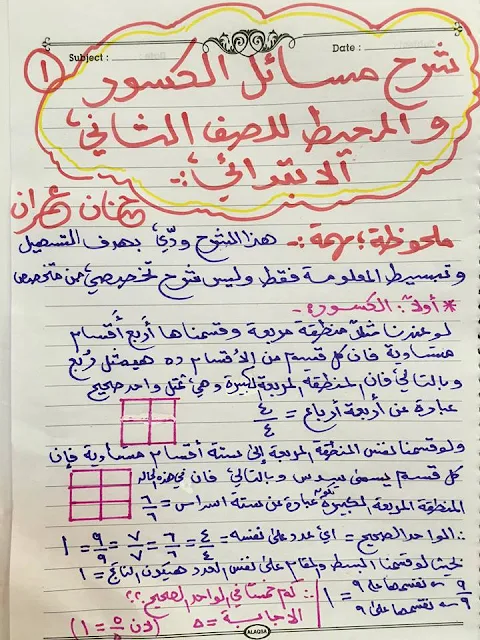 Subject :
Date :
١
شرح مسائل الكسور
والمحيط للصف الثاني
الابتدائي :-
ملحوظة مهمة :-
هذا الشرح ودّي بهدف التسهيل
وتبسيط المعلومة فقط وليس شرح تخصصي من متخصص
* أولاً : الكسور :-
لو عندنا مثلاً منطقة مربعة وقسمناها أربع أقسام
متساوية فإن كل قسم من الأقسام ده هيمثل رُبع
وبالتالي فإن المنطقة المربعة الكبيرة وهي تمثل واحد صحيح
عبارة عن أربعة أرباع = ٤/٤
ولو قسمنا نفس المنطقة المربعة إلى ستة أقسام متساوية فإن
كل قسم يسمى سدس وبالتالي فإن في هذه الحالة
المنطقة المربعة الكبيرة تكون عبارة عن ستة أسداس = ٦/٦
∴ الواحد الصحيح = أي عدد على نفسه = ٤/٤ = ٦/٦ = ٧/٧ = ٩/٩ = ١
بحيث لو قسمنا البسط والمقام على نفس العدد هيكون الناتج = ١
٩/٩ نقسمها على ٩ نقسمها على ٩ = ١
∴ كم خمساً في الواحد الصحيح ؟؟
الإجابة = ٥ (إذن ٥/٥ = ١)
ALAQSA